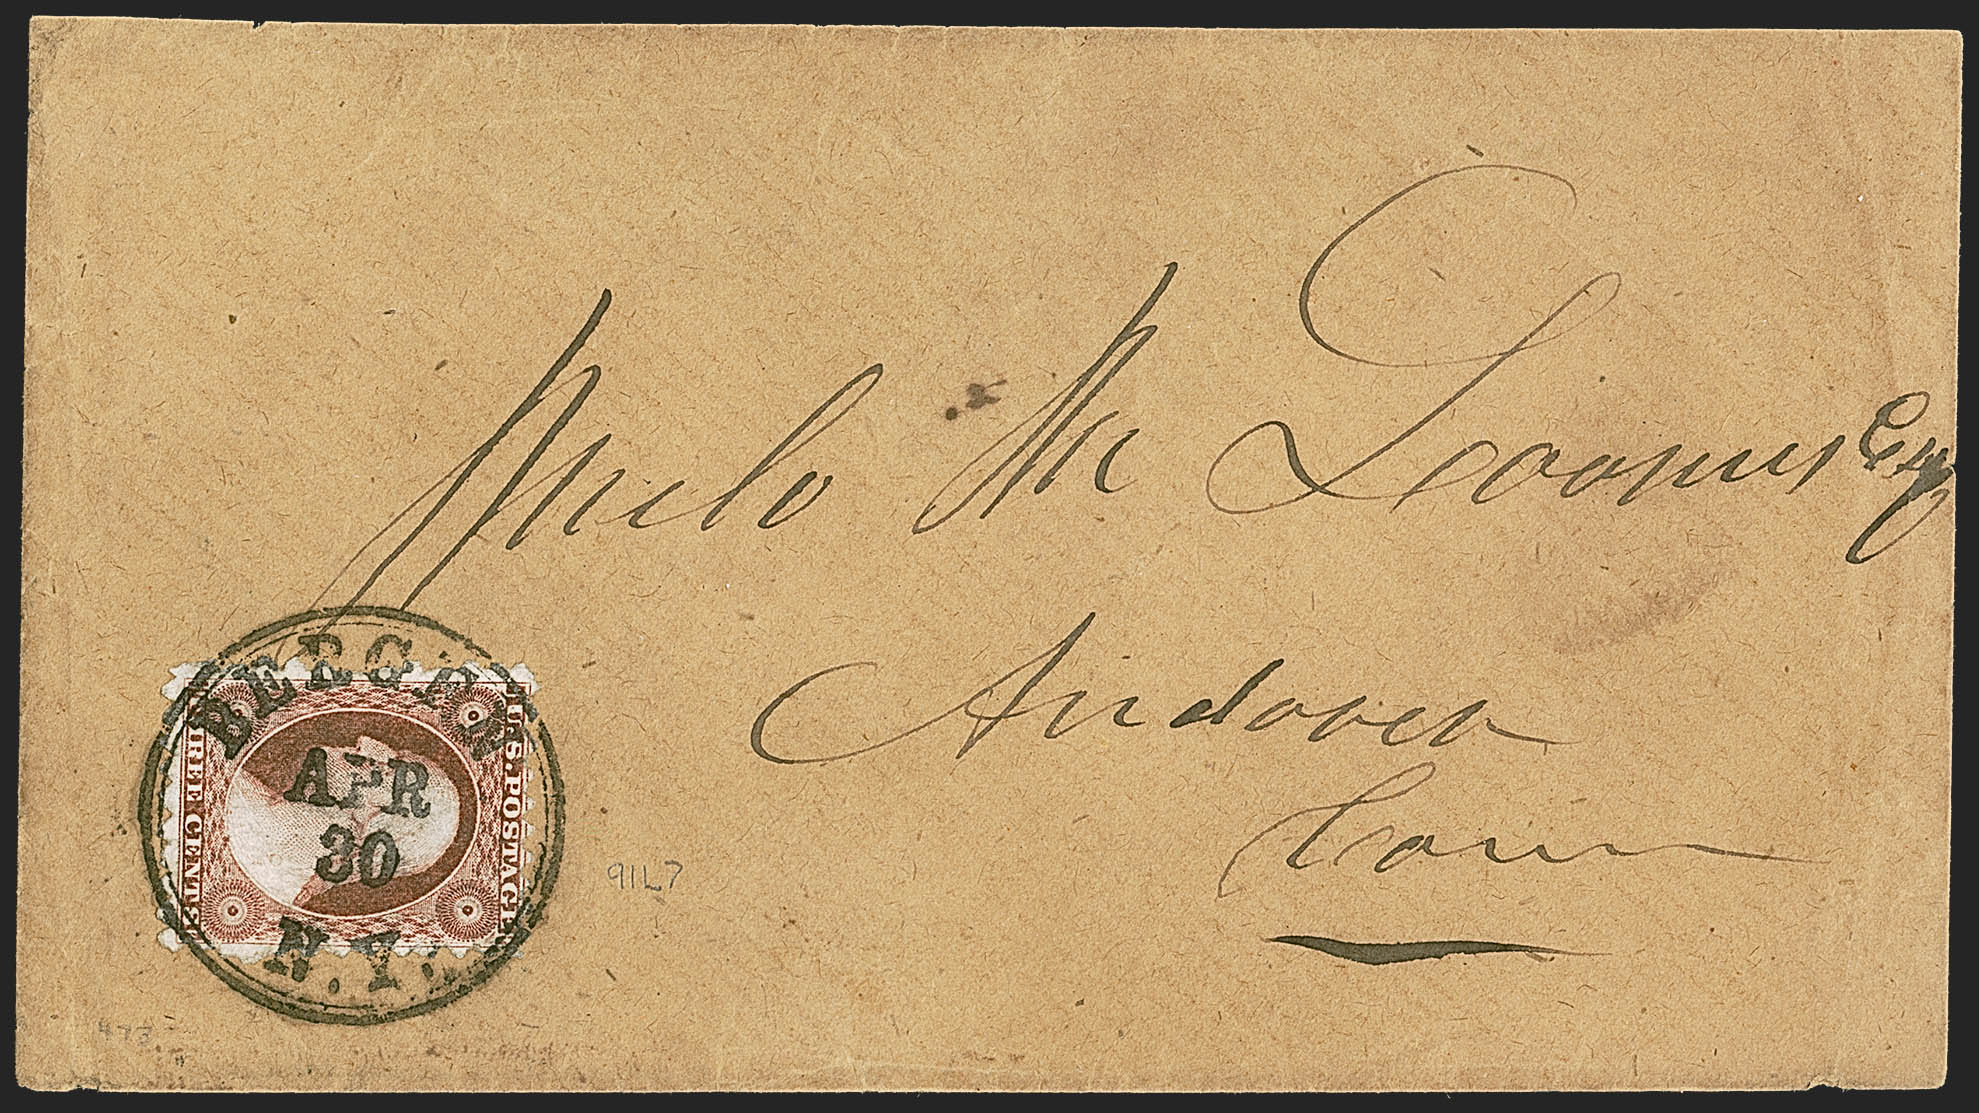 Milo M Loomis Esq
Andover
Conn
BERGEN
APR
30
N.Y.
U.S. POSTAGE
THREE CENTS
91L7
473